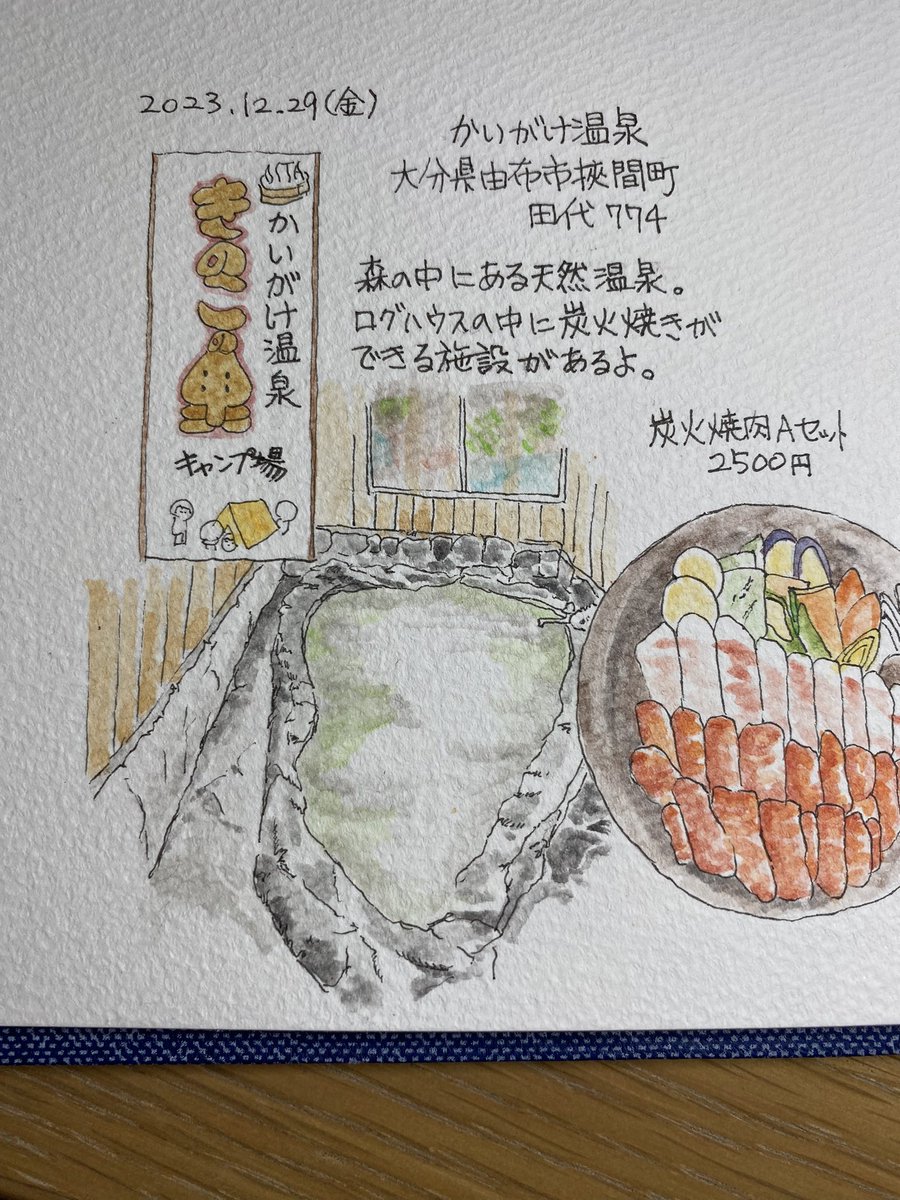 2023.12.29(金)
かいがけ温泉
大分県由布市挾間町
田代774
森の中にある天然温泉。
ログハウスの中に炭火焼きが
できる施設があるよ。
かいがけ温泉
きのこの里
キャンプ場
炭火焼肉Aセット
2500円